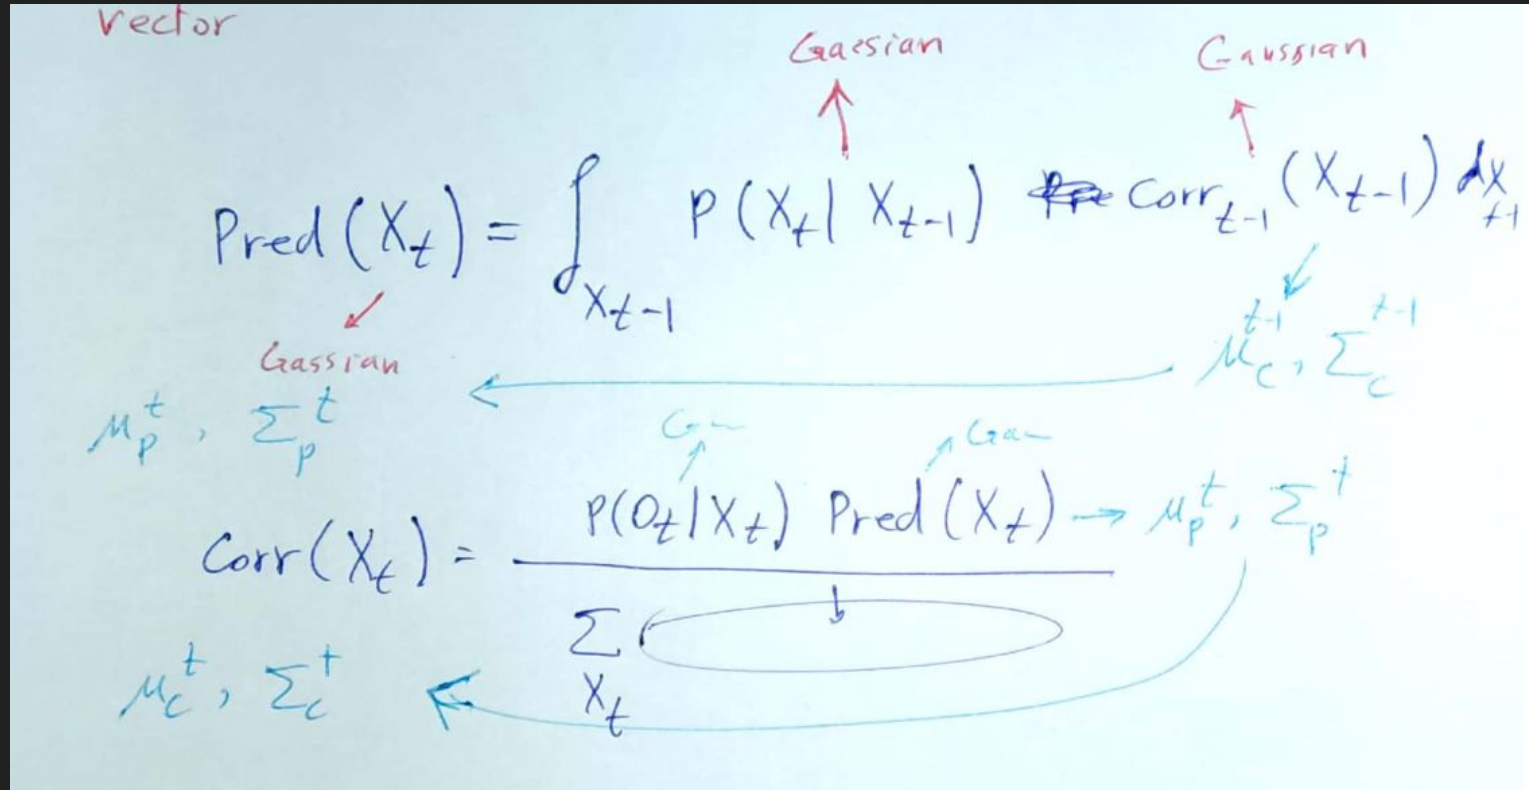 vector
Gaesian Gaussian
Pred (X_t) = ∫_{X_{t-1}} P(X_t | X_{t-1}) Corr_{t-1} (X_{t-1}) dx_{t-1}
Gassian
μ_c^{t-1}, Σ_c^{t-1}
μ_p^t, Σ_p^t
Gau
P(O_t|X_t) Pred (X_t) → μ_p^t, Σ_p^t
Corr(X_t) =
Σ
X_t
μ_c^t, Σ_c^t